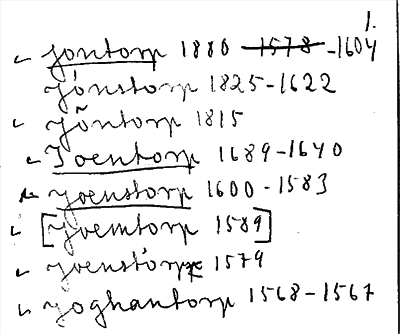 1.
Jontorp 1880 1578 -1604
Jönstorp 1825-1622
Jõntorp 1815
Joentorp 1689-1640
Joenstorp 1600-1583
[Joemtorp 1589]
Joenstorp 1579
Joghantorp 1568-1567